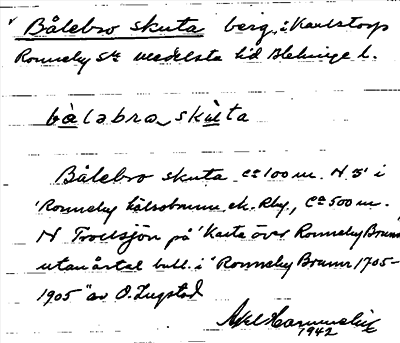 Bålebro skuta berg, i Karlstorp
Ronneby Sn Medelsta hd Blekinge l.
bàlabro skùta
Bålebro skuta ca 100 m. N. 5 i
'Ronneby hälsobrunn ek. Rby, ca 500 m.
N Trollsjön på 'Karta över Ronneby Brunn
utan årtal bull. i "Ronneby Brunn 1705-
1905" av O. Zugstad
Axel
1942